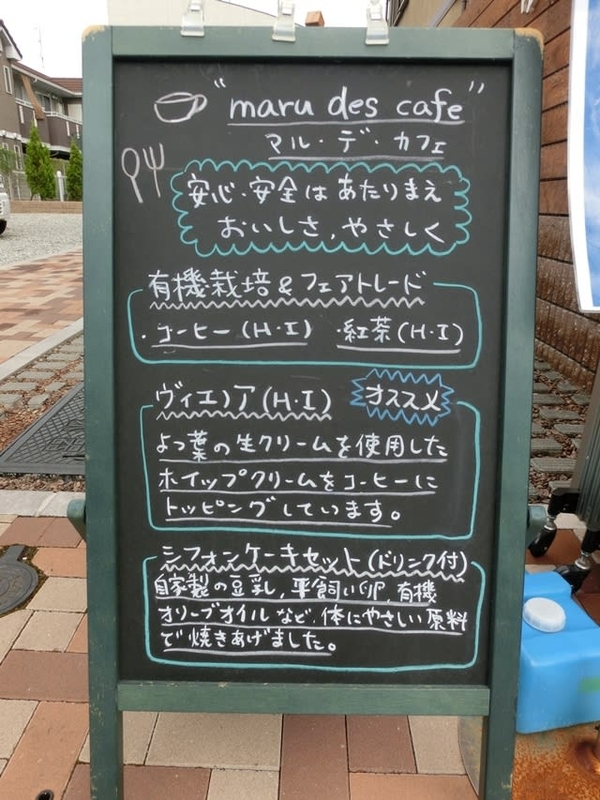 "maru des cafe"
マル・デ・カフェ
安心・安全はあたりまえ
おいしさ,やさしく
有機栽培&フェアトレード
・コーヒー(H・I) ・紅茶(H・I)
ヴィエノア(H・I) オススメ
よつ葉の生クリームを使用した
ホイップクリームをコーヒーに
トッピングしています。
シフォンケーキセット(ドリンク付)
自家製の豆乳,平飼い卵,有機
オリーブオイルなど、体にやさしい原料
で焼きあげました。